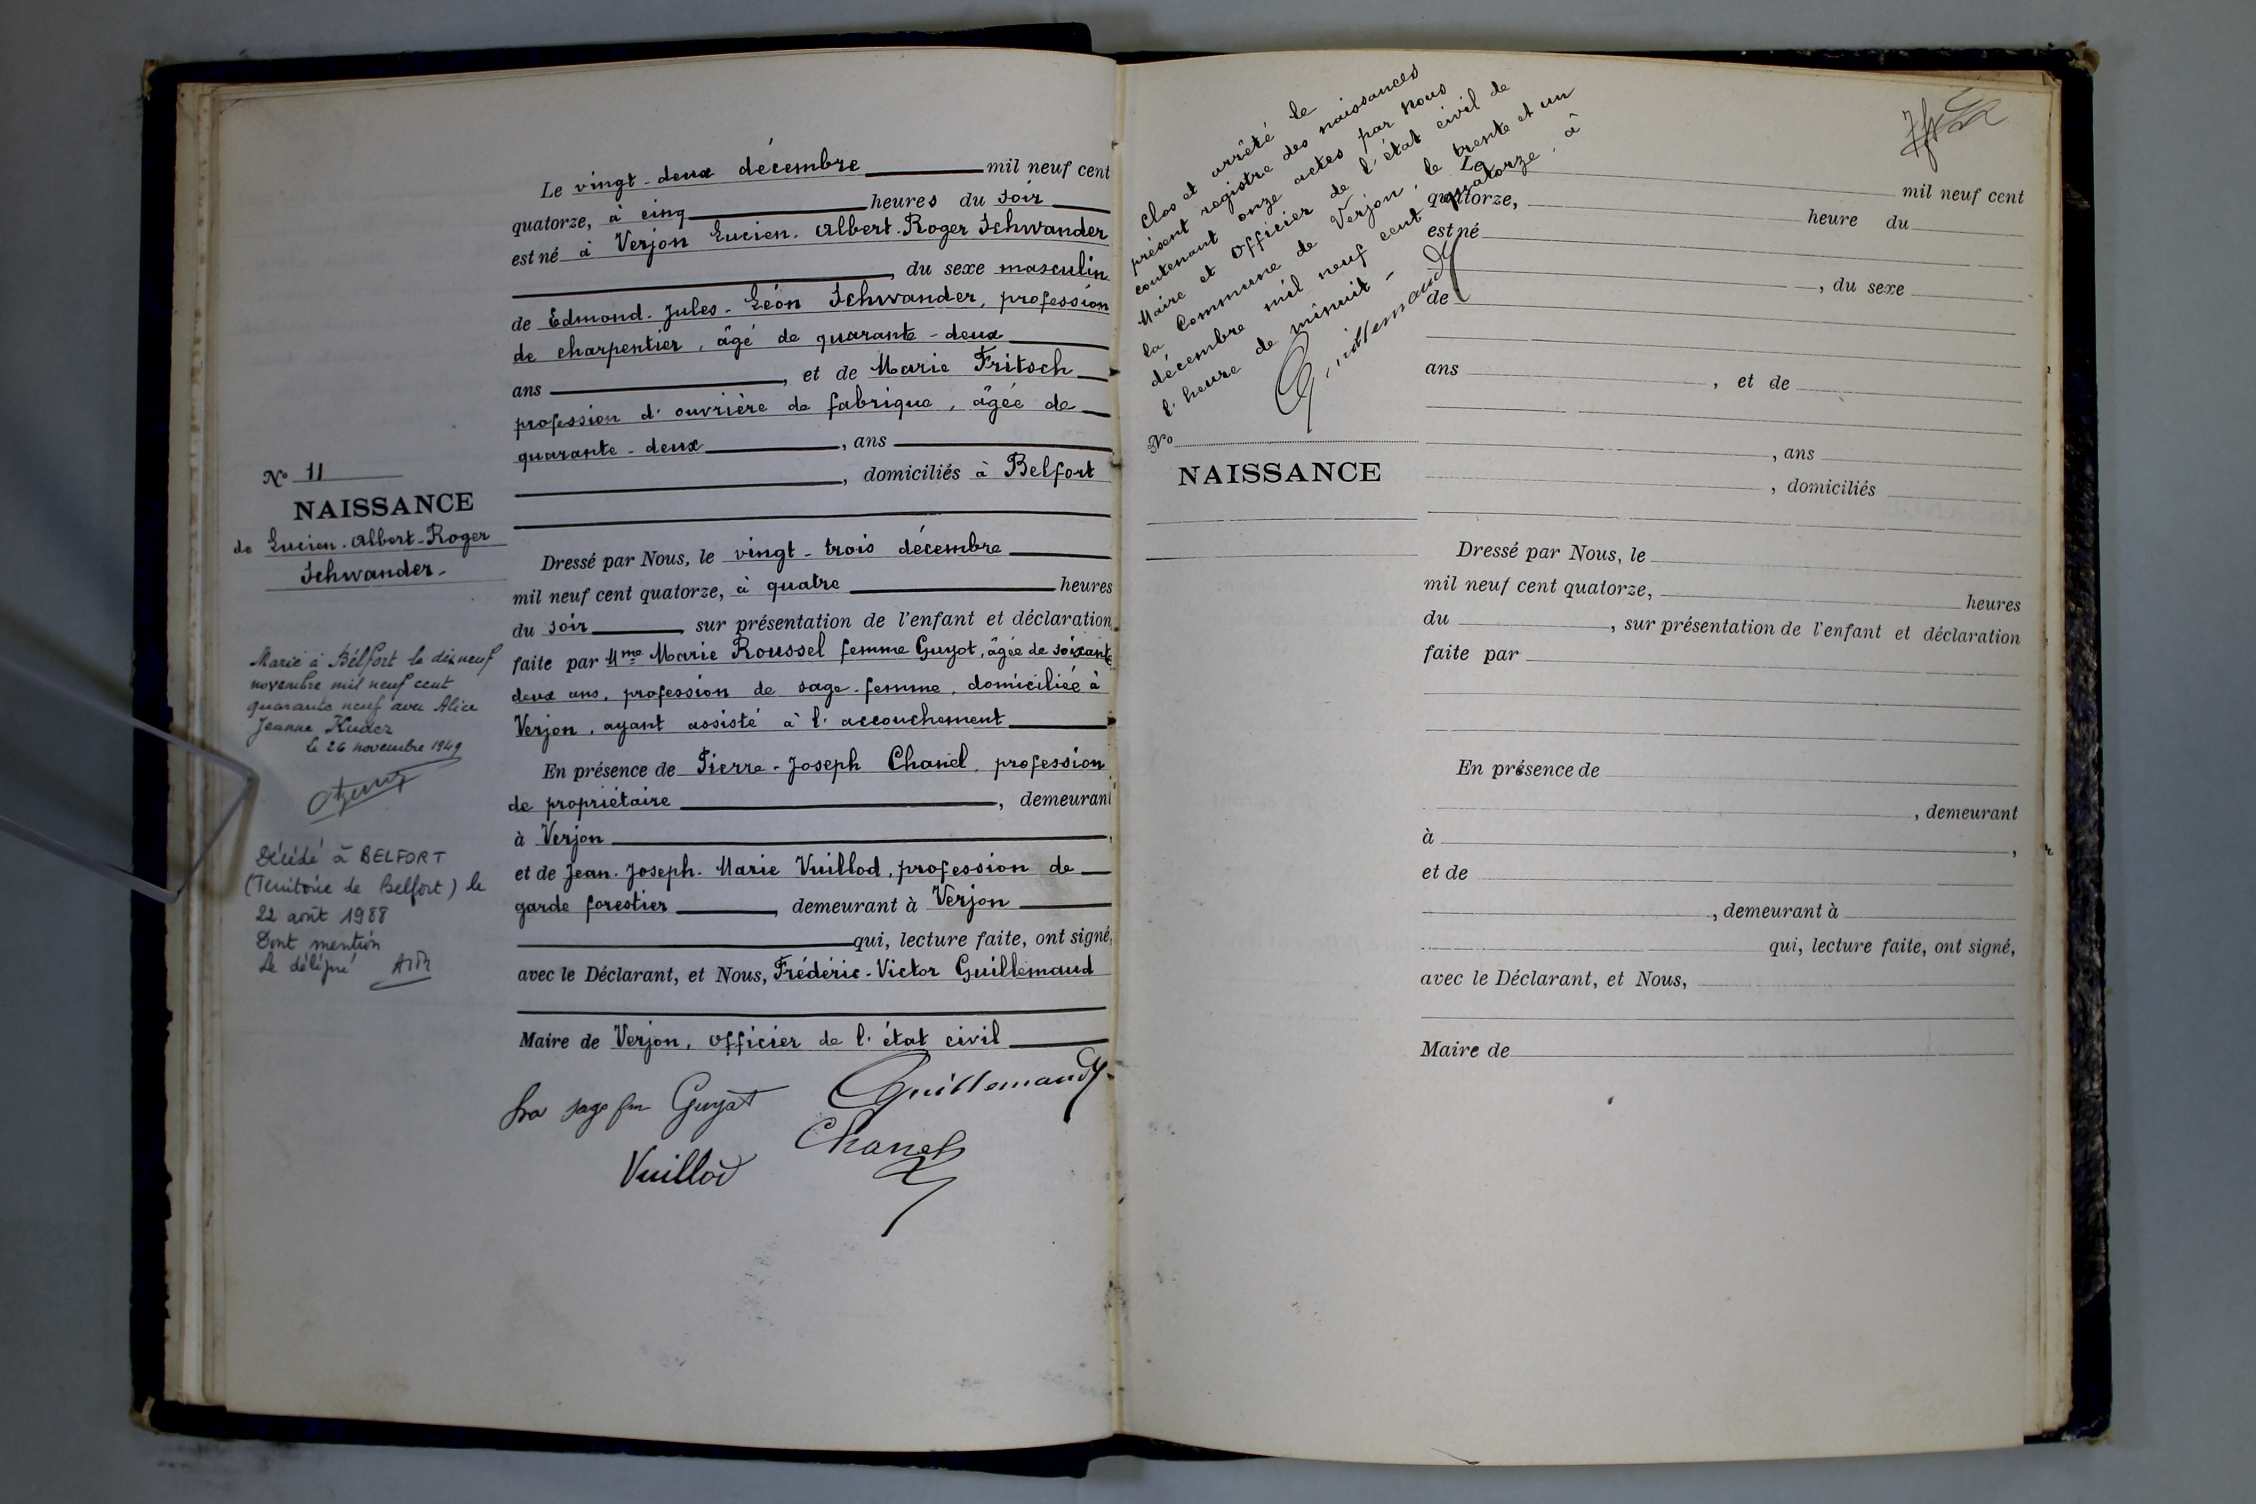 Le vingt-deux décembre mil neuf cent
quatorze, à cinq heures du soir
est né à Verjon Lucien-Albert-Roger Schwander
, du sexe masculin
de Edmond-Jules-Léon Schwander, profession
de charpentier, âgé de quarante-deux
ans , et de Marie Fritsch
profession d'ouvrière de fabrique, âgée de
quarante-deux , ans
, domiciliés à Belfort
Dressé par Nous, le vingt-trois décembre
mil neuf cent quatorze, à quatre heures
du soir , sur présentation de l'enfant et déclaration
faite par Mme Marie Roussel femme Guyot, âgée de soixante
deux ans, profession de sage-femme, domiciliée à
Verjon, ayant assisté à l'accouchement
En présence de Pierre-Joseph Chanel, profession
de propriétaire , demeurant
à Verjon ,
et de Jean-Joseph-Marie Vuillod, profession de
garde forestier , demeurant à Verjon
qui, lecture faite, ont signé,
avec le Déclarant, et Nous, Frédéric-Victor Guillemaud
Maire de Verjon, officier de l'état civil
La sage fm Guyot Guillemaud
Chanel
Vuillod
No 11
NAISSANCE
de Lucien-Albert-Roger
Schwander-
Marié à Bélfort le dix neuf
novembre mil neuf cent
quarante neuf avec Alice
Jeanne
le 26 novembre 1949
Décédé à BELFORT
(Territoire de Belfort) le
22 août 1988
Dont mention
Le délégué
Clos et arrêté le
présent registre des naissances
contenant onze actes par nous
Maire et Officier de l'état civil de
la Commune de Verjon, le trente et un
décembre mil neuf cent quatorze, à
l'heure de minuit-
Guillemaud
No
NAISSANCE
Le mil neuf cent
quatorze, heure du
est né
, du sexe
de
ans , et de
, ans
, domiciliés
Dressé par Nous, le
mil neuf cent quatorze, heures
du , sur présentation de l'enfant et déclaration
faite par
En présence de
, demeurant
à ,
et de
, demeurant à
qui, lecture faite, ont signé,
avec le Déclarant, et Nous,
Maire de